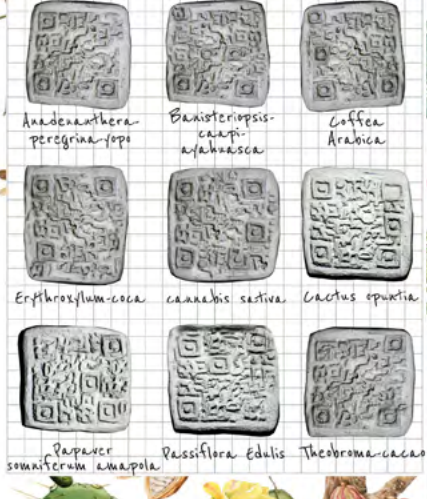 Anadenanthera-
peregrina-yopo
Banisteriopsis-
caapi-
ayahuasca
Coffea
Arabica
Erythroxylum-coca
cannabis sativa
Cactus opuntia
Papaver
somniferum amapola
Passiflora Edulis
Theobroma-cacao